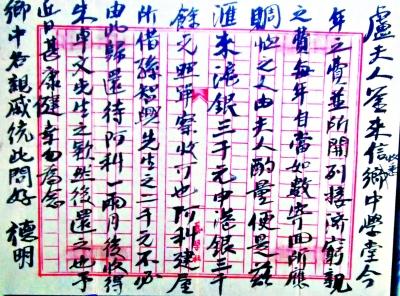 盧夫人鉴來信收悉鄉中學堂今
年之費並所開列接濟窮親
之費每年自當如數寄回所應
賙恤之人由夫人酌量便是茲
滙來滬銀三千元申港銀三千
餘元照單察收可也阿科建屋
所借孫智興先生之二千元不必
由此歸還待阿科一兩月後收得
朱卓文先生之款然後還之也予
近日甚康健幸勿為念
鄉中各親戚統此問好 德明